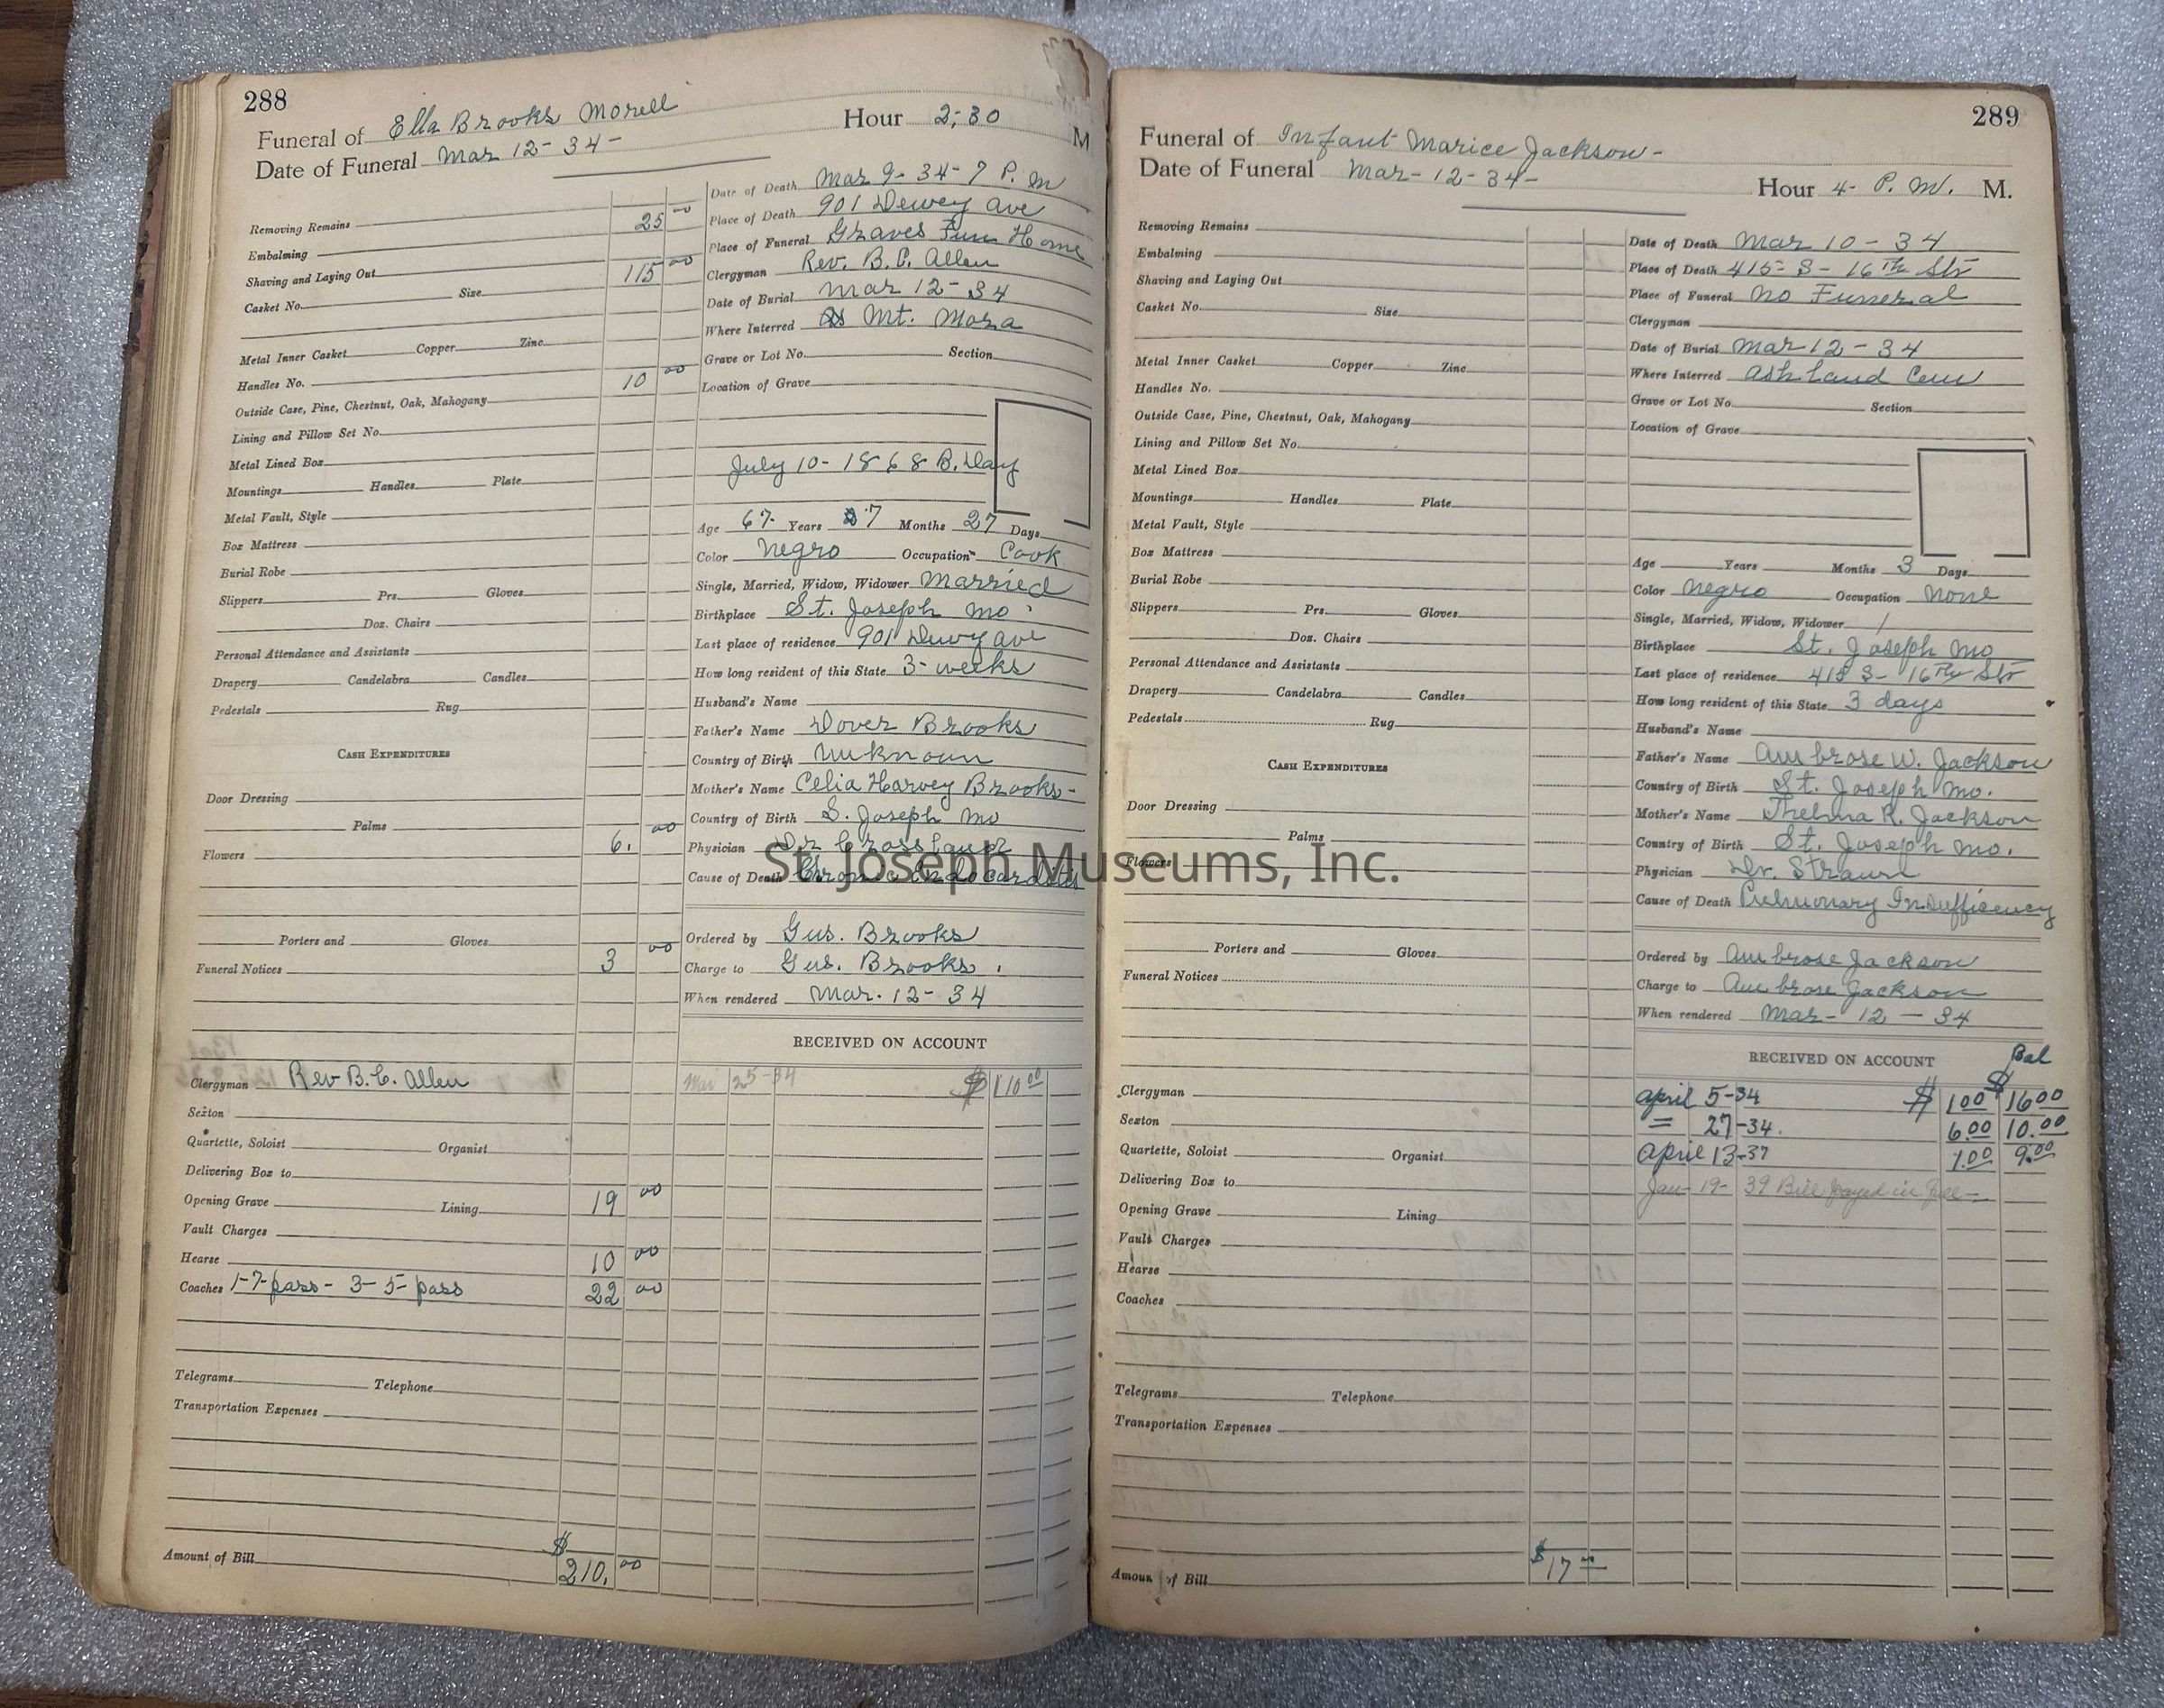 288
Funeral of Ella Brooks Morell Hour 2:30 M
Date of Funeral Mar 12-34-
Removing Remains 25 00
Embalming
Shaving and Laying Out 115 00
Casket No. Size
Metal Inner Casket Copper Zinc
Handles No. 10 00
Outside Case, Pine, Chestnut, Oak, Mahogany
Lining and Pillow Set No.
Metal Lined Box
Mountings Handles Plate
Metal Vault, Style
Box Mattress
Burial Robe
Slippers Prs Gloves
Doz. Chairs
Personal Attendance and Assistants
Drapery Candelabra Candles
Pedestals Rug
CASH EXPENDITURES
Door Dressing
Palms
Flowers 6. 00
Porters and Gloves
Funeral Notices 3 00
Clergyman Rev B.C. Allen
Sexton
Quartette, Soloist Organist
Delivering Box to
Opening Grave Lining 19 00
Vault Charges
Hearse 10 00
Coaches 1-7-pass- 3-5-pass 22 00
Telegrams Telephone
Transportation Expenses
Amount of Bill $210. 00
Date of Death Mar 9-34-7 P.m
Place of Death 901 Dewey Ave
Place of Funeral Graves Fun Home
Clergyman Rev. B.C. Allen
Date of Burial Mar 12-34
Where Interred Mt. Mora
Grave or Lot No. Section
Location of Grave
July 10-1868 B.Day
Age 67 Years 7 Months 27 Days
Color Negro Occupation Cook
Single, Married, Widow, Widower Married
Birthplace St. Joseph Mo
Last place of residence 901 Dewy Ave
How long resident of this State 3-weeks
Husband's Name
Father's Name Dover Brooks
Country of Birth Unknown
Mother's Name Celia Harvey Brooks-
Country of Birth S. Joseph Mo
Physician Dr
Cause of Death Chronic Endocarditis
Ordered by Gus. Brooks
Charge to Gus. Brooks.
When rendered Mar. 12-34
RECEIVED ON ACCOUNT
Mar 25-34 $110 00
St. Joseph Museums, Inc.
289
Funeral of Infant Marice Jackson-
Date of Funeral Mar-12-34- Hour 4- P.M. M.
Removing Remains
Embalming
Shaving and Laying Out
Casket No. Size
Metal Inner Casket Copper Zinc
Handles No.
Outside Case, Pine, Chestnut, Oak, Mahogany
Lining and Pillow Set No.
Metal Lined Box
Mountings Handles Plate
Metal Vault, Style
Box Mattress
Burial Robe
Slippers Prs Gloves
Doz. Chairs
Personal Attendance and Assistants
Drapery Candelabra Candles
Pedestals Rug
CASH EXPENDITURES
Door Dressing
Palms
Flowers
Porters and Gloves
Funeral Notices
Clergyman
Sexton
Quartette, Soloist Organist
Delivering Box to
Opening Grave Lining
Vault Charges
Hearse
Coaches
Telegrams Telephone
Transportation Expenses
Amount of Bill $17 00
Date of Death Mar 10-34
Place of Death 415-S-16th Str
Place of Funeral No Funeral
Clergyman
Date of Burial Mar 12-34
Where Interred Ashland Cem
Grave or Lot No. Section
Location of Grave
Age Years Months 3 Days
Color Negro Occupation None
Single, Married, Widow, Widower
Birthplace St. Joseph Mo
Last place of residence 415 S-16th Str
How long resident of this State 3 days
Husband's Name
Father's Name Ambrose W. Jackson
Country of Birth St. Joseph Mo.
Mother's Name Thelma R. Jackson
Country of Birth St. Joseph Mo.
Physician Dr.
Cause of Death Pulmonary Insufficiency
Ordered by Ambrose Jackson
Charge to Ambrose Jackson
When rendered Mar-12-34
RECEIVED ON ACCOUNT Bal
April 5-34 $1.00 $16.00
= 27-34. 6.00 10.00
April 13-37 1.00 9.00
Jan-19-39 Bill payed in full-